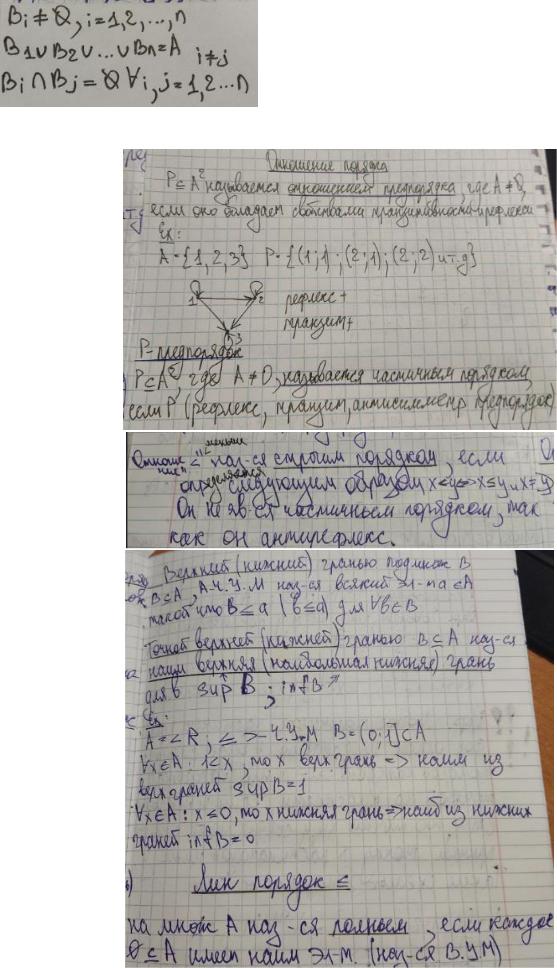 Bi ≠ ∅, i=1,2,...,n
B1∪B2∪...∪Bn=A i≠j
Bi∩Bj=∅ ∀i,j=1,2...n
Отношение порядка
P⊆A² называется отношением предпорядка, где A≠∅,
если оно обладает свойствами транзитивности и рефлекси
Ex:
A={1,2,3} P={(1;1);(2;1);(2;2) и т.д}
1 2 рефлекс+
3 транзит+
P-предпорядок
P⊆A², где A≠∅, называется частичным порядком,
если P (рефлекс, транзит, антисимметр предпорядок)
меньше
Отноше ние "<" наз-ся строгим порядком, если
определяется следующим образом x<y⇔x≤y и x≠y
Он не яв-ся частичным порядком, так
как он антирефлекс.
Верхней (нижней) гранью подмнож B
B⊆A, А.Ч.У.М наз-ся всякий эл-т a∈A
такой что b≤a (b≤a) для ∀b∈B
Точной верхней (нижней) гранью B⊆A наз-ся
наим верхняя (наибольшая нижняя) грань
для B sup B ; inf B
Ex:
A=<R, ≤>-Ч.У.М B=(0;1]⊂A
∀x∈A: 1<x, то x верх грань => наим из
верх граней sup B=1
∀x∈A: x≤0, то x нижняя грань=>наиб из нижних
граней inf B=0
Лин порядок ≤
на множ A наз-ся полным, если каждое
∅⊆A имеет наим эл-т. (наз-ся В.У.М)